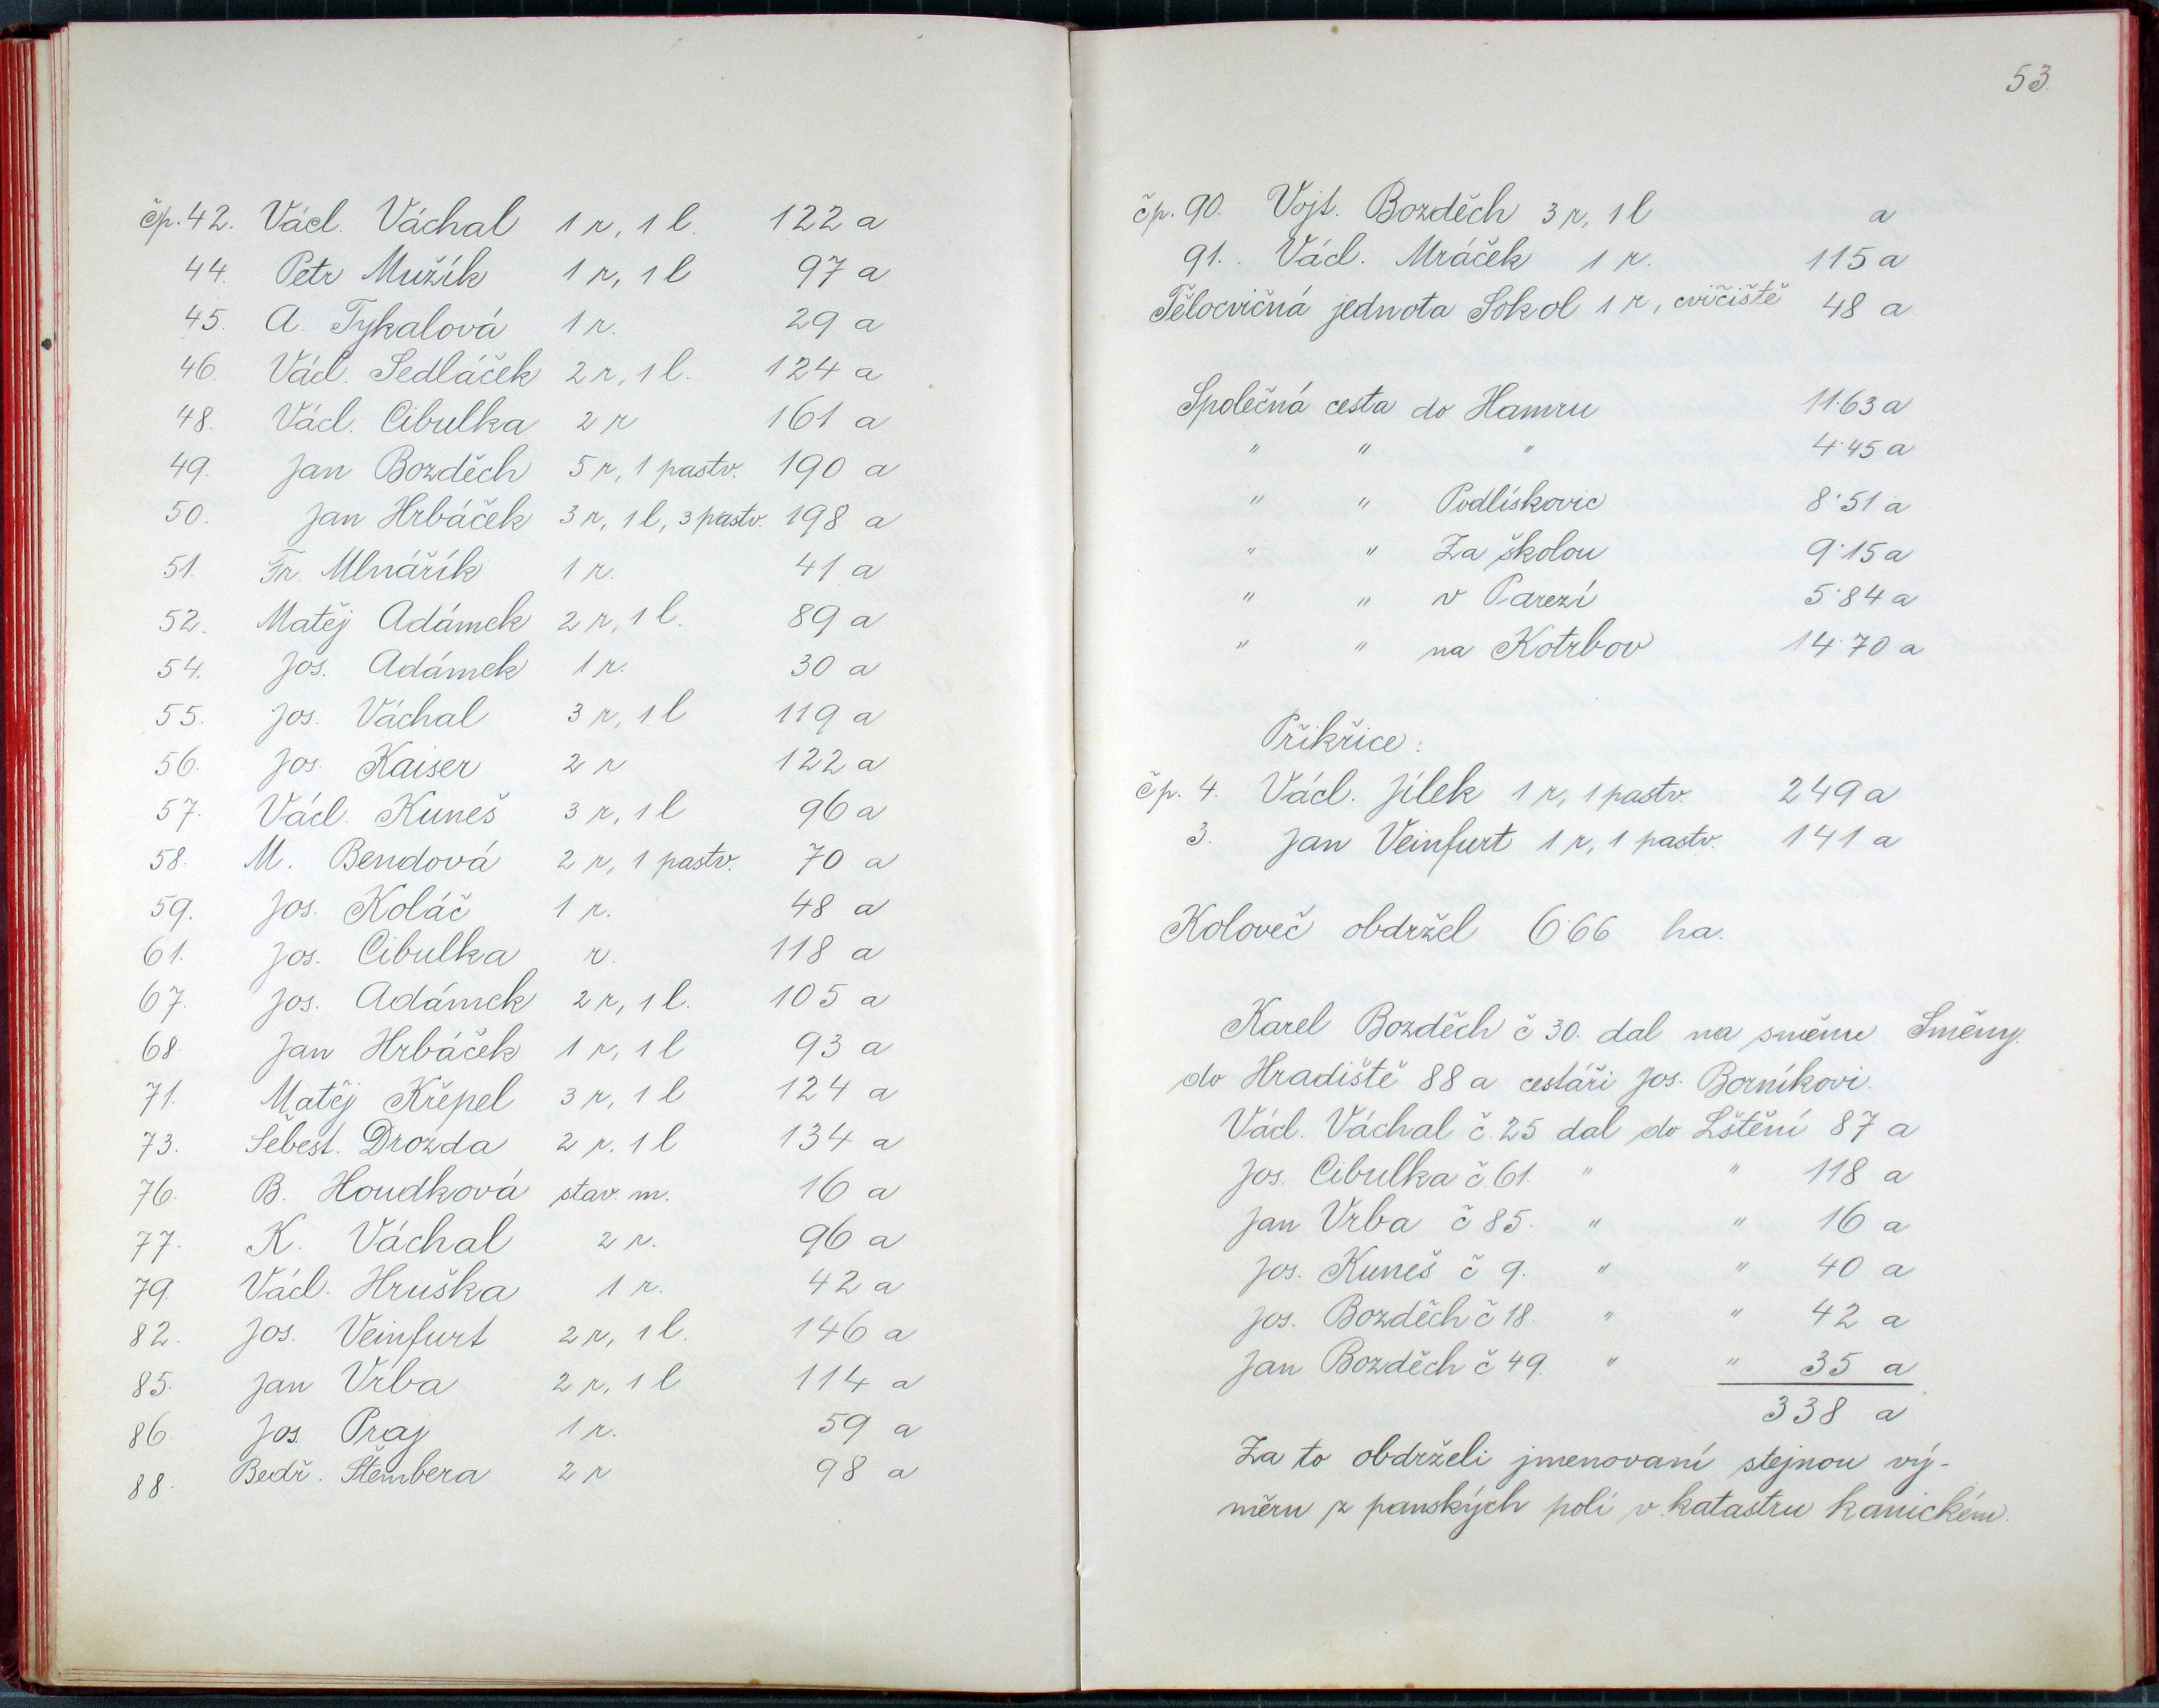 čp. 42. Václ. Váchal 1 r, 1 l. 122 a
44. Petr Mužík 1 r, 1 l 97 a
45. A. Tykalová 1 r. 29 a
46. Václ. Sedláček 2 r, 1 l. 124 a
48. Václ. Cibulka 2 r 161 a
49. Jan Bozděch 5 r, 1 pastv. 190 a
50. Jan Hrbáček 3 r, 1 l, 3 pastv. 198 a
51. Fr. Mlnářík 1 r. 41 a
52. Matěj Adámek 2 r, 1 l. 89 a
54. Jos. Adámek 1 r. 30 a
55. Jos. Váchal 3 r, 1 l 119 a
56. Jos. Kaiser 2 r 122 a
57. Václ. Kuneš 3 r, 1 l 96 a
58. M. Bendová 2 r, 1 pastv. 70 a
59. Jos. Koláč 1 r. 48 a
61. Jos. Cibulka r. 118 a
67. Jos. Adámek 2 r, 1 l. 105 a
68. Jan Hrbáček 1 r, 1 l 93 a
71. Matěj Křepel 3 r, 1 l 124 a
73. Šebest. Drozda 2 r. 1 l 134 a
76. B. Houdková stav. m. 16 a
77. K. Váchal 2 r. 96 a
79. Václ. Hruška 1 r. 42 a
82. Jos. Veinfurt 2 r, 1 l. 146 a
85. Jan Vrba 2 r, 1 l 114 a
86. Jos. Praj 1 r. 59 a
88. Bedř. Štembera 2 r 98 a
53.
čp. 90. Vojt. Bozděch 3 r, 1 l a
91. Václ. Mráček 1 r. 115 a
Tělocvičná jednota Sokol 1 r, cvičiště 48 a
Společná cesta do Hamru 11·63 a
" " " 4·45 a
" " Podlískovic 8·51 a
" " Za školou 9·15 a
" " v Parezí 5·84 a
" " na Kotrbov 14·70 a
Přikřice:
čp. 4. Václ. Jílek 1 r, 1 pastv. 249 a
3. Jan Veinfurt 1 r, 1 pastv. 141 a
Koloveč obdržel 6·66 ha.
Karel Bozděch č 30. dal na směnu Směny.
do Hradiště 88 a cestáři Jos. Borníkovi.
Václ. Váchal č. 25 dal do Lštění 87 a
Jos. Cibulka č. 61. " " 118 a
Jan Vrba č 85. " " 16 a
Jos. Kuneš č 9. " " 40 a
Jos. Bozděch č 18. " " 42 a
Jan Bozděch č 49. " " 35 a
338 a
Za to obdrželi jmenovaní stejnou vý-
měru z panských polí v katastru kanickém.